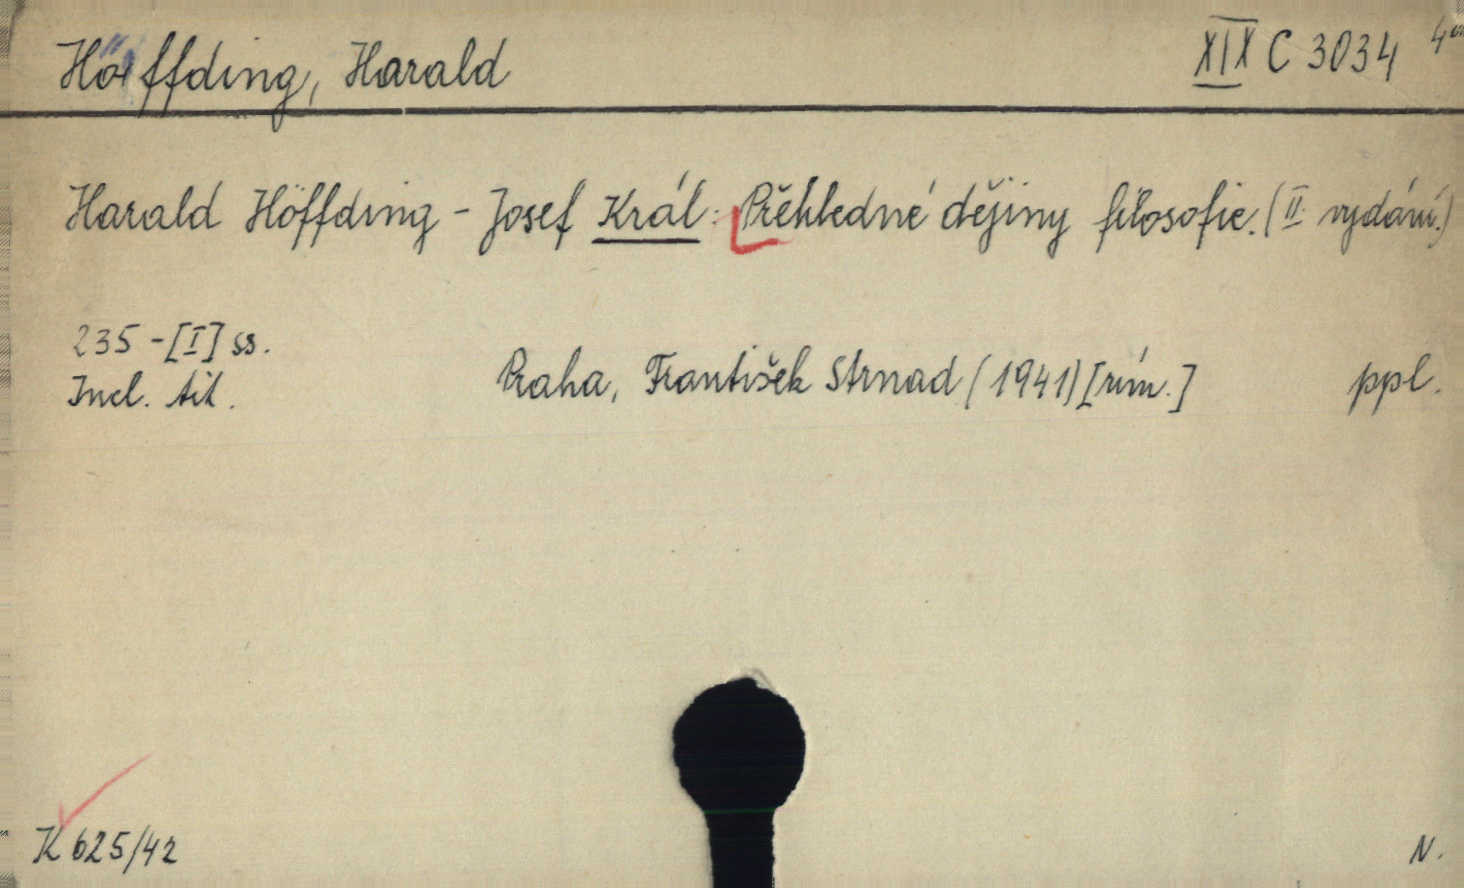 Höffding, Harald XIX C 3034
Harald Höffding - Josef Král: Přehledné dějiny filosofie. (II. vydání.)
235 - [I] ss.
Incl. tit. Praha, František Strnad (1941) [rím.] ppl.
K 625/42 N.